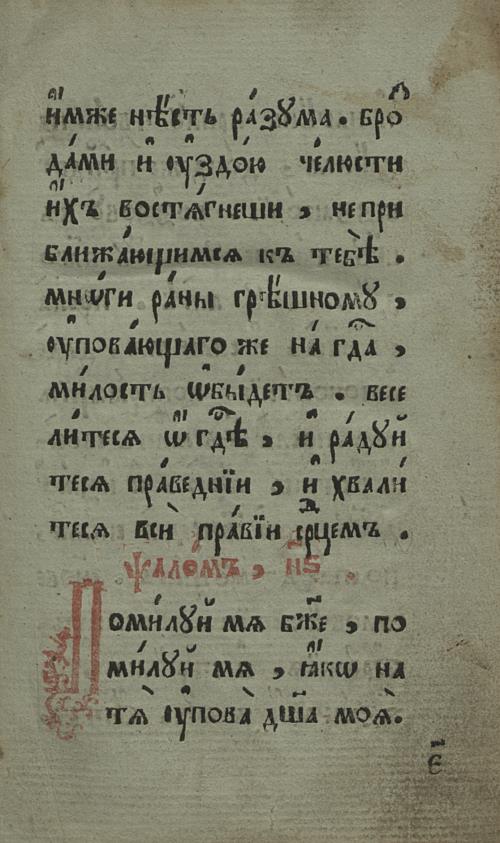 и҆́мже нѣ́сть ра́зꙋма. бро
да́ми и҆ ᲂу҆здо́ю че́люсти
и҆́хъ востѧ́гнеши, не при
ближа́ющимсѧ къ тебѣ̀.
мнѡ́ги ра́ны грѣ́шномꙋ,
ᲂу҆пова́ющаго же на́ гд҇а,
ми́лость ѡ҆бы́детъ. весе
ли́тесѧ ѡ҆́ гд҇ѣ, и҆ ра́дꙋй
тесѧ пра́веднїи, и҆ хвали́
тесѧ всѝ пра́вїи срⷣцемъ.
ѱало́мъ, н҃ѕ.
Поми́лꙋй мѧ бж҃е, по
ми́лꙋй мѧ, ꙗ҆́кѡ на
тѧ̀ ᲂу҆пова̀ дш҃а моѧ̀.
є҃